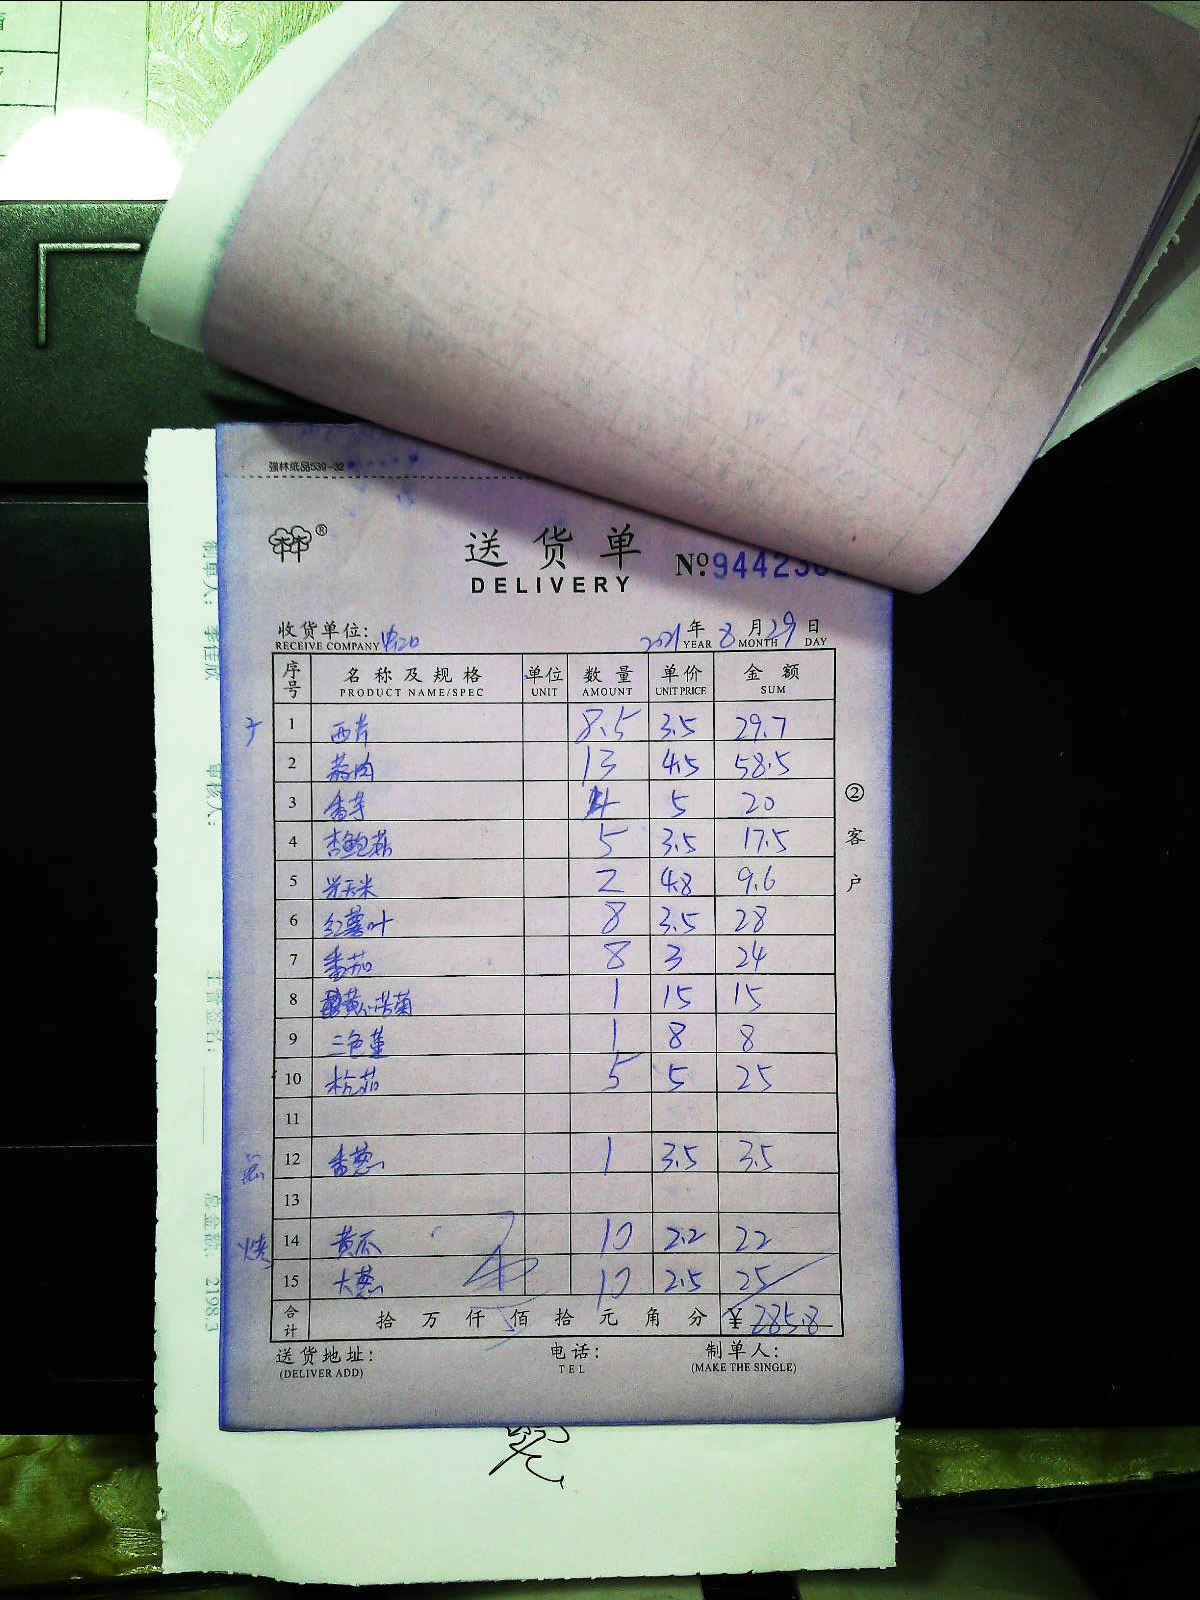 强林纸品539-32
®
送货单 №9442
DELIVERY
收货单位: 2021年8月29日
RECEIVE COMPANY YEAR MONTH DAY
序号 名称及规格 单位 数量 单价 金额
PRODUCT NAME/SPEC UNIT AMOUNT UNIT PRICE SUM
1 西芹 8.5 3.5 29.7
2 13 4.5 58.5
3 香芋 4 5 20
4 杏鲍菇 5 3.5 17.5
5 2 4.8 9.6
6 红薯叶 8 3.5 28
7 番茄 8 3 24
8 黄心苦菊 1 15 15
9 三色堇 1 8 8
10 杭茄 5 5 25
11
12 香葱 1 3.5 3.5
13
14 黄瓜 10 2.2 22
15 大葱 10 2.5 25
合计 拾万仟佰拾元角分 ¥285.8
送货地址: 电话: 制单人:
(DELIVER ADD) TEL (MAKE THE SINGLE)
②客户
制单人:
审核人:
总金额: 2198.3